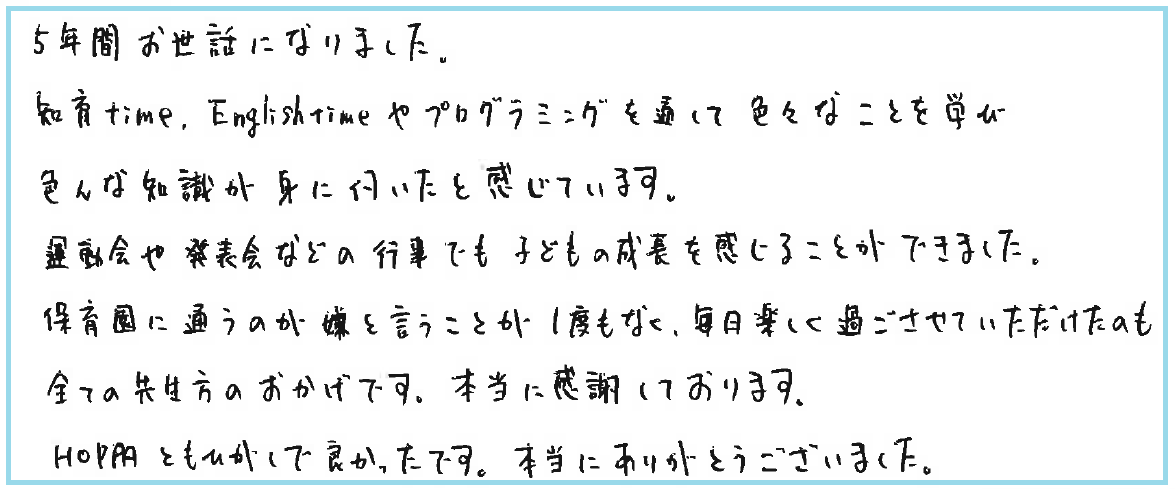 5年間お世話になりました。
知育time、Englishtimeやプログラミングを通して色々なことを学び
色んな知識が身に付いたと感じています。
運動会や発表会などの行事でも子どもの成長を感じることができました。
保育園に通うのが嫌と言うことが1度もなく、毎日楽しく過ごさせていただけたのも
全ての先生方のおかげです。本当に感謝しております。
HOPPAともひがしで良かったです。本当にありがとうございました。